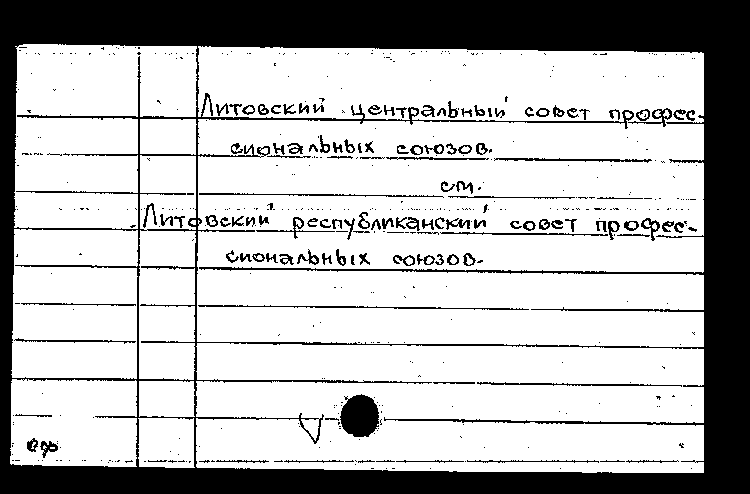 Литовский центральный совет профес-
сиональных союзов.
см.
Литовский республиканский совет профес-
сиональных союзов.